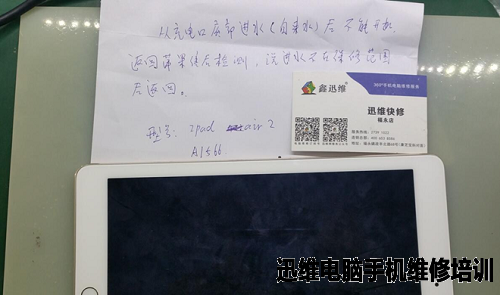 从充电口底部进水(自来水)后不能开机
返回苹果售后检测,说进水不在保修范围
后返回。
型号: Ipad air 2
A1566
鑫迅维
迅维快修
福永店
迅维电脑手机维修培训